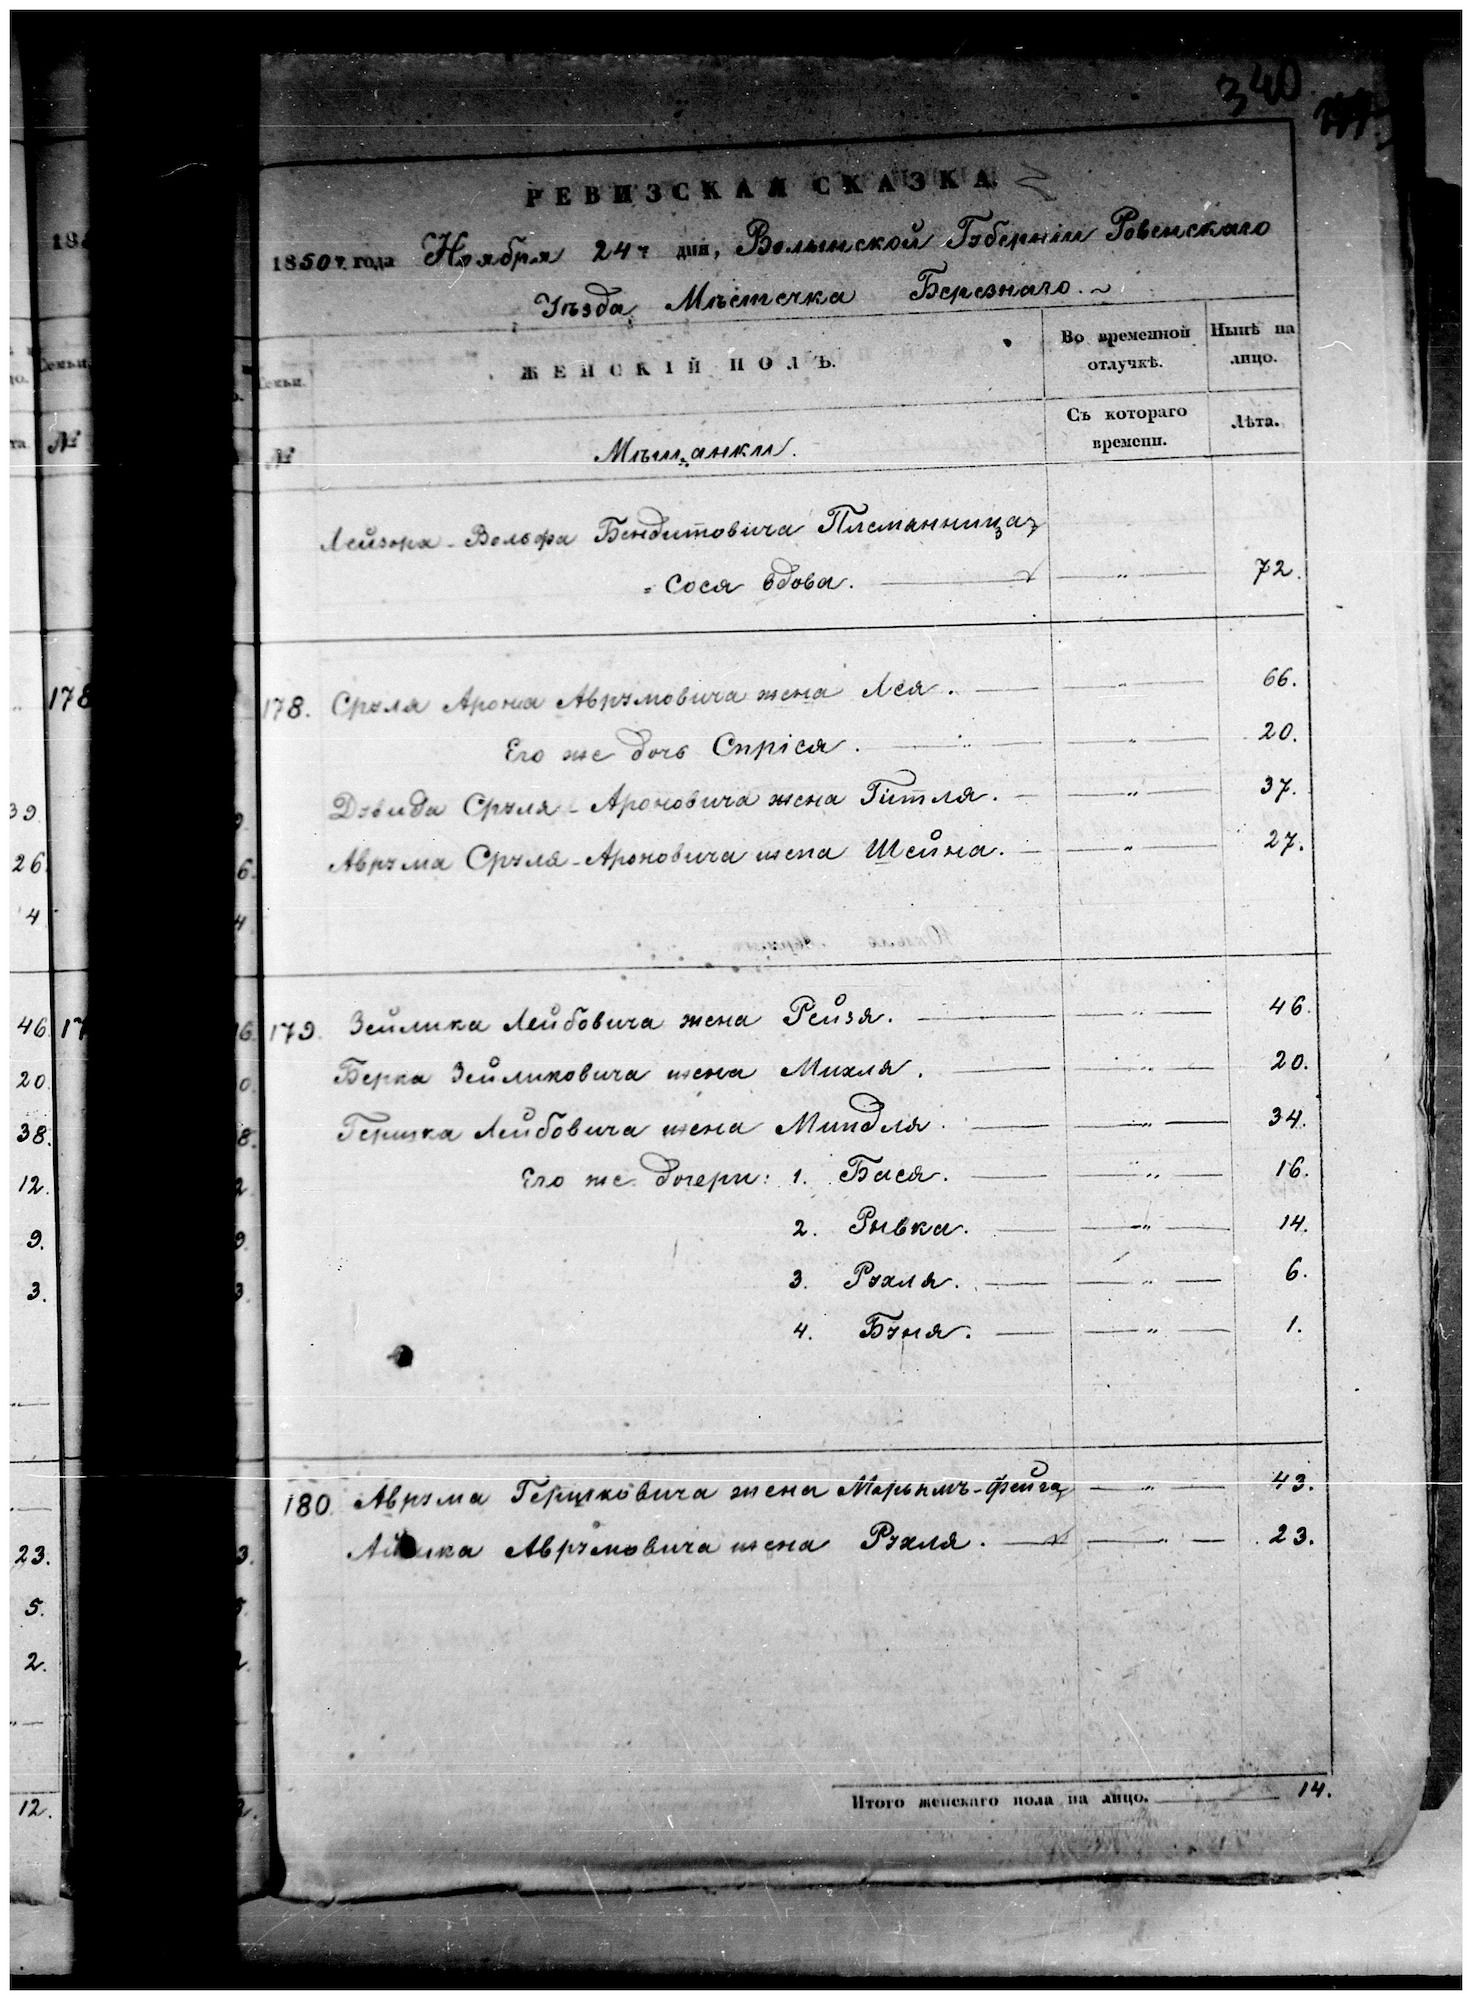 340
РЕВИЗСКАЯ СКАЗКА
1850 г. года Ноября 24 г дня, Волынской Губерніи Ровенскаго
Уѣзда Мѣстечка Березнаго.
Семьи.
ЖЕНСКІЙ ПОЛЪ.
Во временной отлучкѣ.
Нынѣ на лицо.
№
Мѣщанки.
Съ котораго времени.
Лѣта.
Лейзора-Вольфа Бендитовича Племянница
Сося вдова. — " — 72.
178. Сруля Арона Аврумовича жена Лея. — " — 66.
Его же дочь Спріся. — " — 20.
Дувида Сруля-Ароновича жена Гітля. — " — 37.
Аврума Сруля-Ароновича жена Шейна. — " — 27.
179. Зейлика Лейбовича жена Рейзя. — " — 46.
Берка Зейликовича жена Михля. — " — 20.
Гершка Лейбовича жена Миндля. — " — 34.
Его же дочери: 1. Бася. — " — 16.
2. Рывка. — " — 14.
3. Рухля. — " — 6.
4. Буня. — " — 1.
180. Аврума Гершковича жена Марымъ-Фейга — " — 43.
Аврумовича жена Рухля. — " — 23.
Итого женскаго пола на лицо. — 14.
178
39
26
4
46
17
20
38.
12.
9.
3.
23.
5.
2.
12.